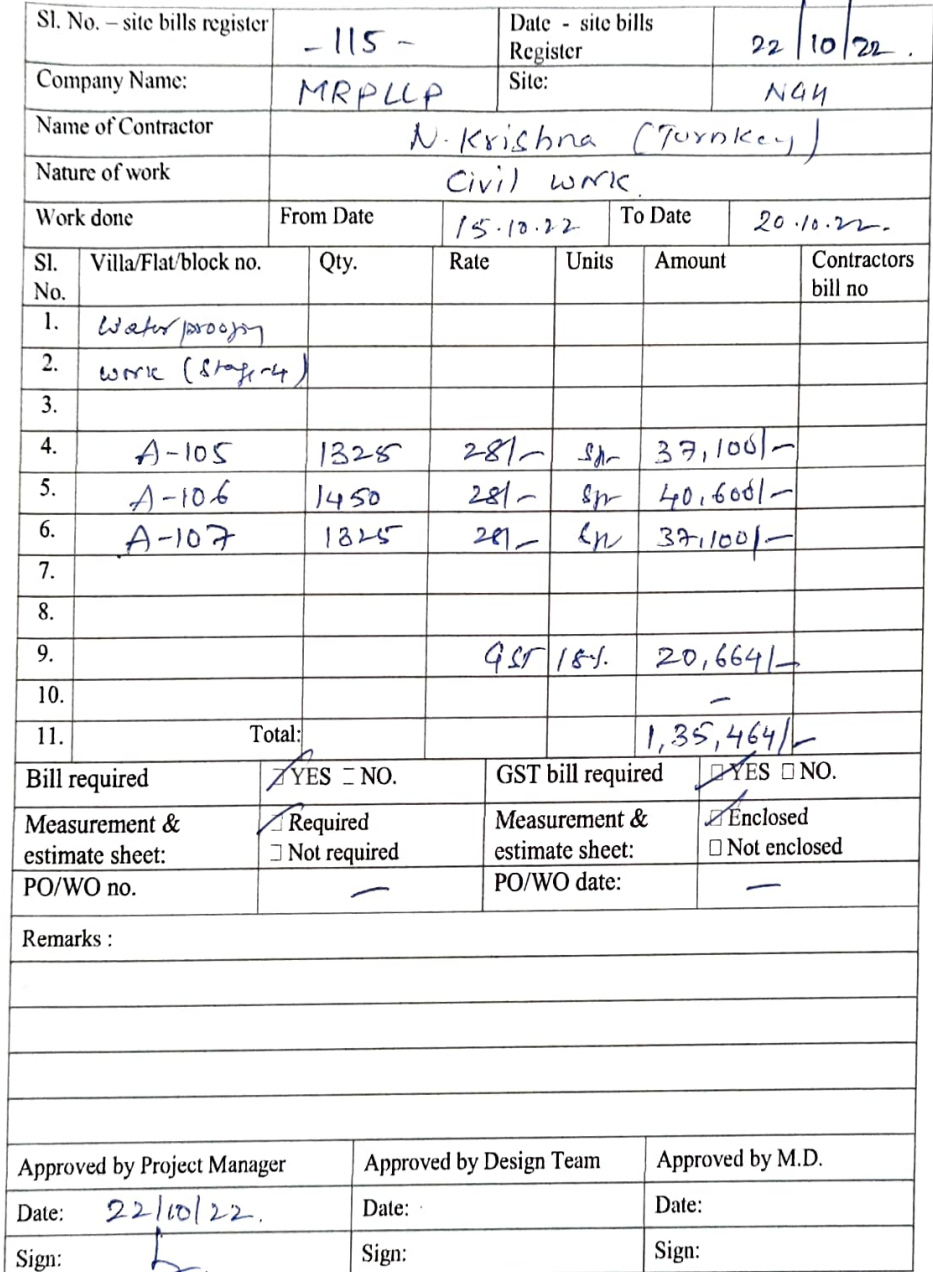 Sl. No. – site bills register - 115 - Date - site bills Register 22/10/22.
Company Name: MRPLLP Site: NGH
Name of Contractor N. Krishna (Turnkey)
Nature of work Civil work
Work done From Date 15.10.22 To Date 20.10.22.
Sl. No. Villa/Flat/block no. Qty. Rate Units Amount Contractors bill no
1. Waterproofing
2. work (Stage-4)
3.
4. A-105 1325 28/- Sft 37,100/-
5. A-106 1450 28/- Sft 40,600/-
6. A-107 1325 28/- Sft 37,100/-
7.
8.
9. GST 18%. 20,664/-
10. -
11. Total: 1,35,464/-
Bill required YES NO. GST bill required YES NO.
Measurement & estimate sheet: Required Measurement & estimate sheet: Enclosed
Not required Not enclosed
PO/WO no. - PO/WO date: -
Remarks :
Approved by Project Manager Approved by Design Team Approved by M.D.
Date: 22/10/22. Date: Date:
Sign: Sign: Sign: